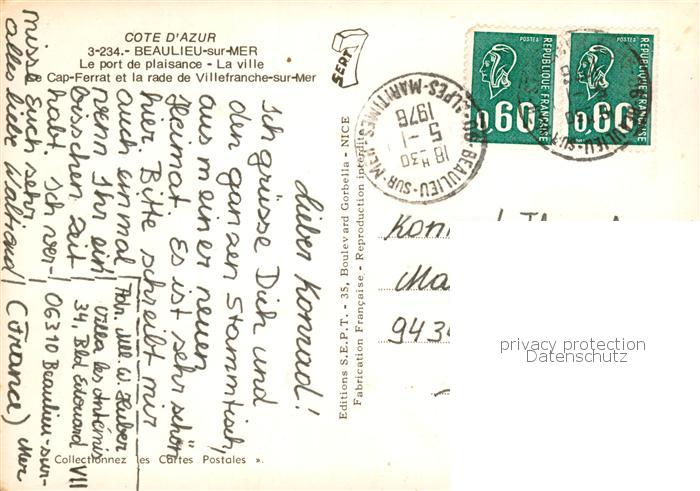 COTE D'AZUR
3-234.- BEAULIEU-sur-MER
Le port de plaisance - La ville
Cap-Ferrat et la rade de Villefranche-sur-Mer
SEPT
Lieber Konrad!
Ich grüsse Dich und
den ganzen Stammtisch,
aus meiner neuen
Heimat. Es ist sehr schön
hier. Bitte schreibt mir
auch einmal
wenn Ihr ein
bisschen Zeit
habt. Ich ver-
misse Euch sehr
alles liebe Waltraud
Abs. Mll. W. Huber
Villa les Anthémis
34, Bld Edouard VII
06310 Beaulieu-sur-
Mer
(France)
Collectionnez les Cartes Postales ».
Editions S.E.P.T. - 35, Boulevard Gorbella - NICE
Fabrication Française - Reproduction interdite
POSTES
REPUBLIQUE FRANÇAISE
0,60
POSTES
REPUBLIQUE FRANÇAISE
0,60
BEAULIEU-SUR-MER
ALPES-MARITIMES
18 H 30
5-1-
1976
Kon
Ma
943
privacy protection
Datenschutz